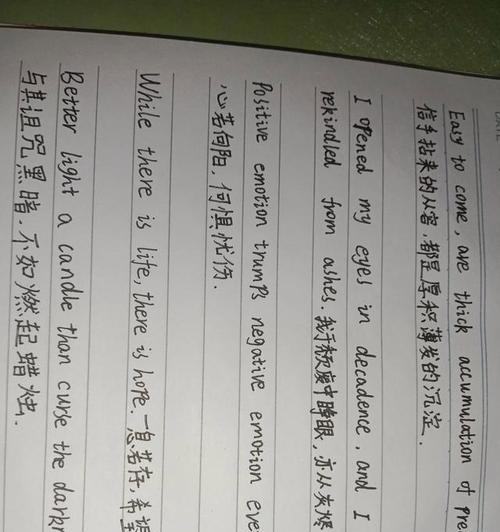 Easy to come, are thick accumulation of
信手拈来的从容,都是厚积薄发的沉淀.
I opened my eyes in decadence, and I
rekindled from ashes. 我于颓废中睁眼,亦从灰烬
Positive emotion trumps negative emotion
心若向阳,何惧忧伤.
While there is life, there is hope. 一息若存,希望
Better light a candle than curse the
与其诅咒黑暗.不如燃起蜡烛.